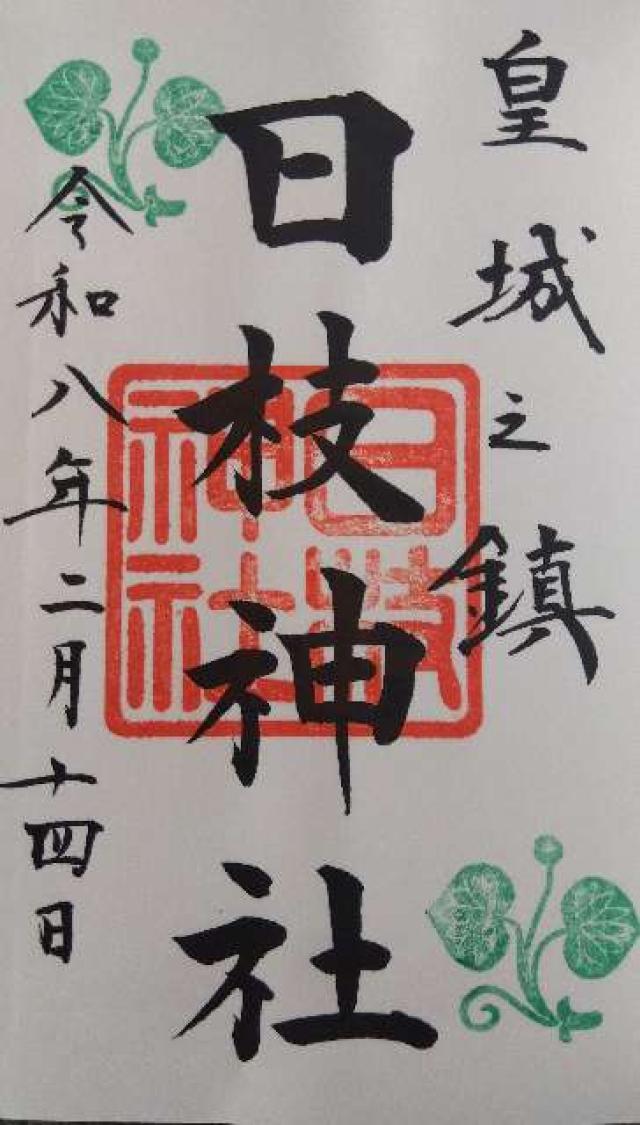 皇城之鎮
日枝神社
日枝
神社
令和八年二月十四日